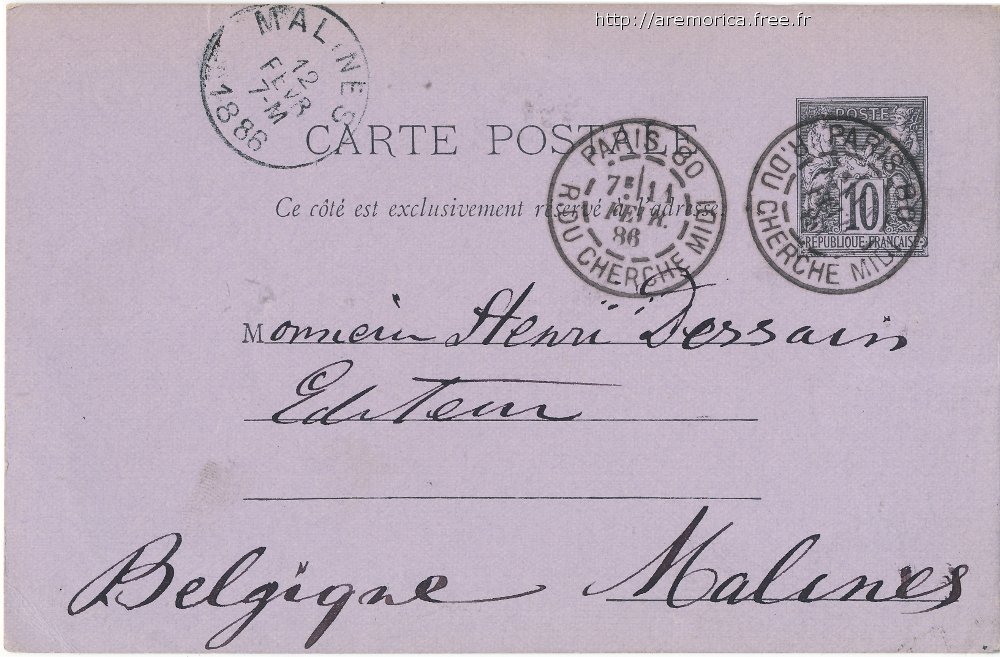 http://aremorica.free.fr
MALINES
12
FEVR
7-M
1886
POSTE
10
REPUBLIQUE FRANÇAISE
CARTE POSTALE
Ce côté est exclusivement réservé à l'adresse.
PARIS 80
7E 11
FEVR.
86
R. DU CHERCHE MIDI
PARIS 80
R. DU CHERCHE MIDI
Monsieur Henri Dessain
Editeur
Belgique Malines